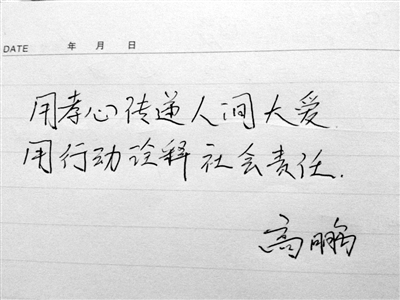 DATE 年 月 日
用孝心传递人间大爱.
用行动诠释社会责任.
高鹏